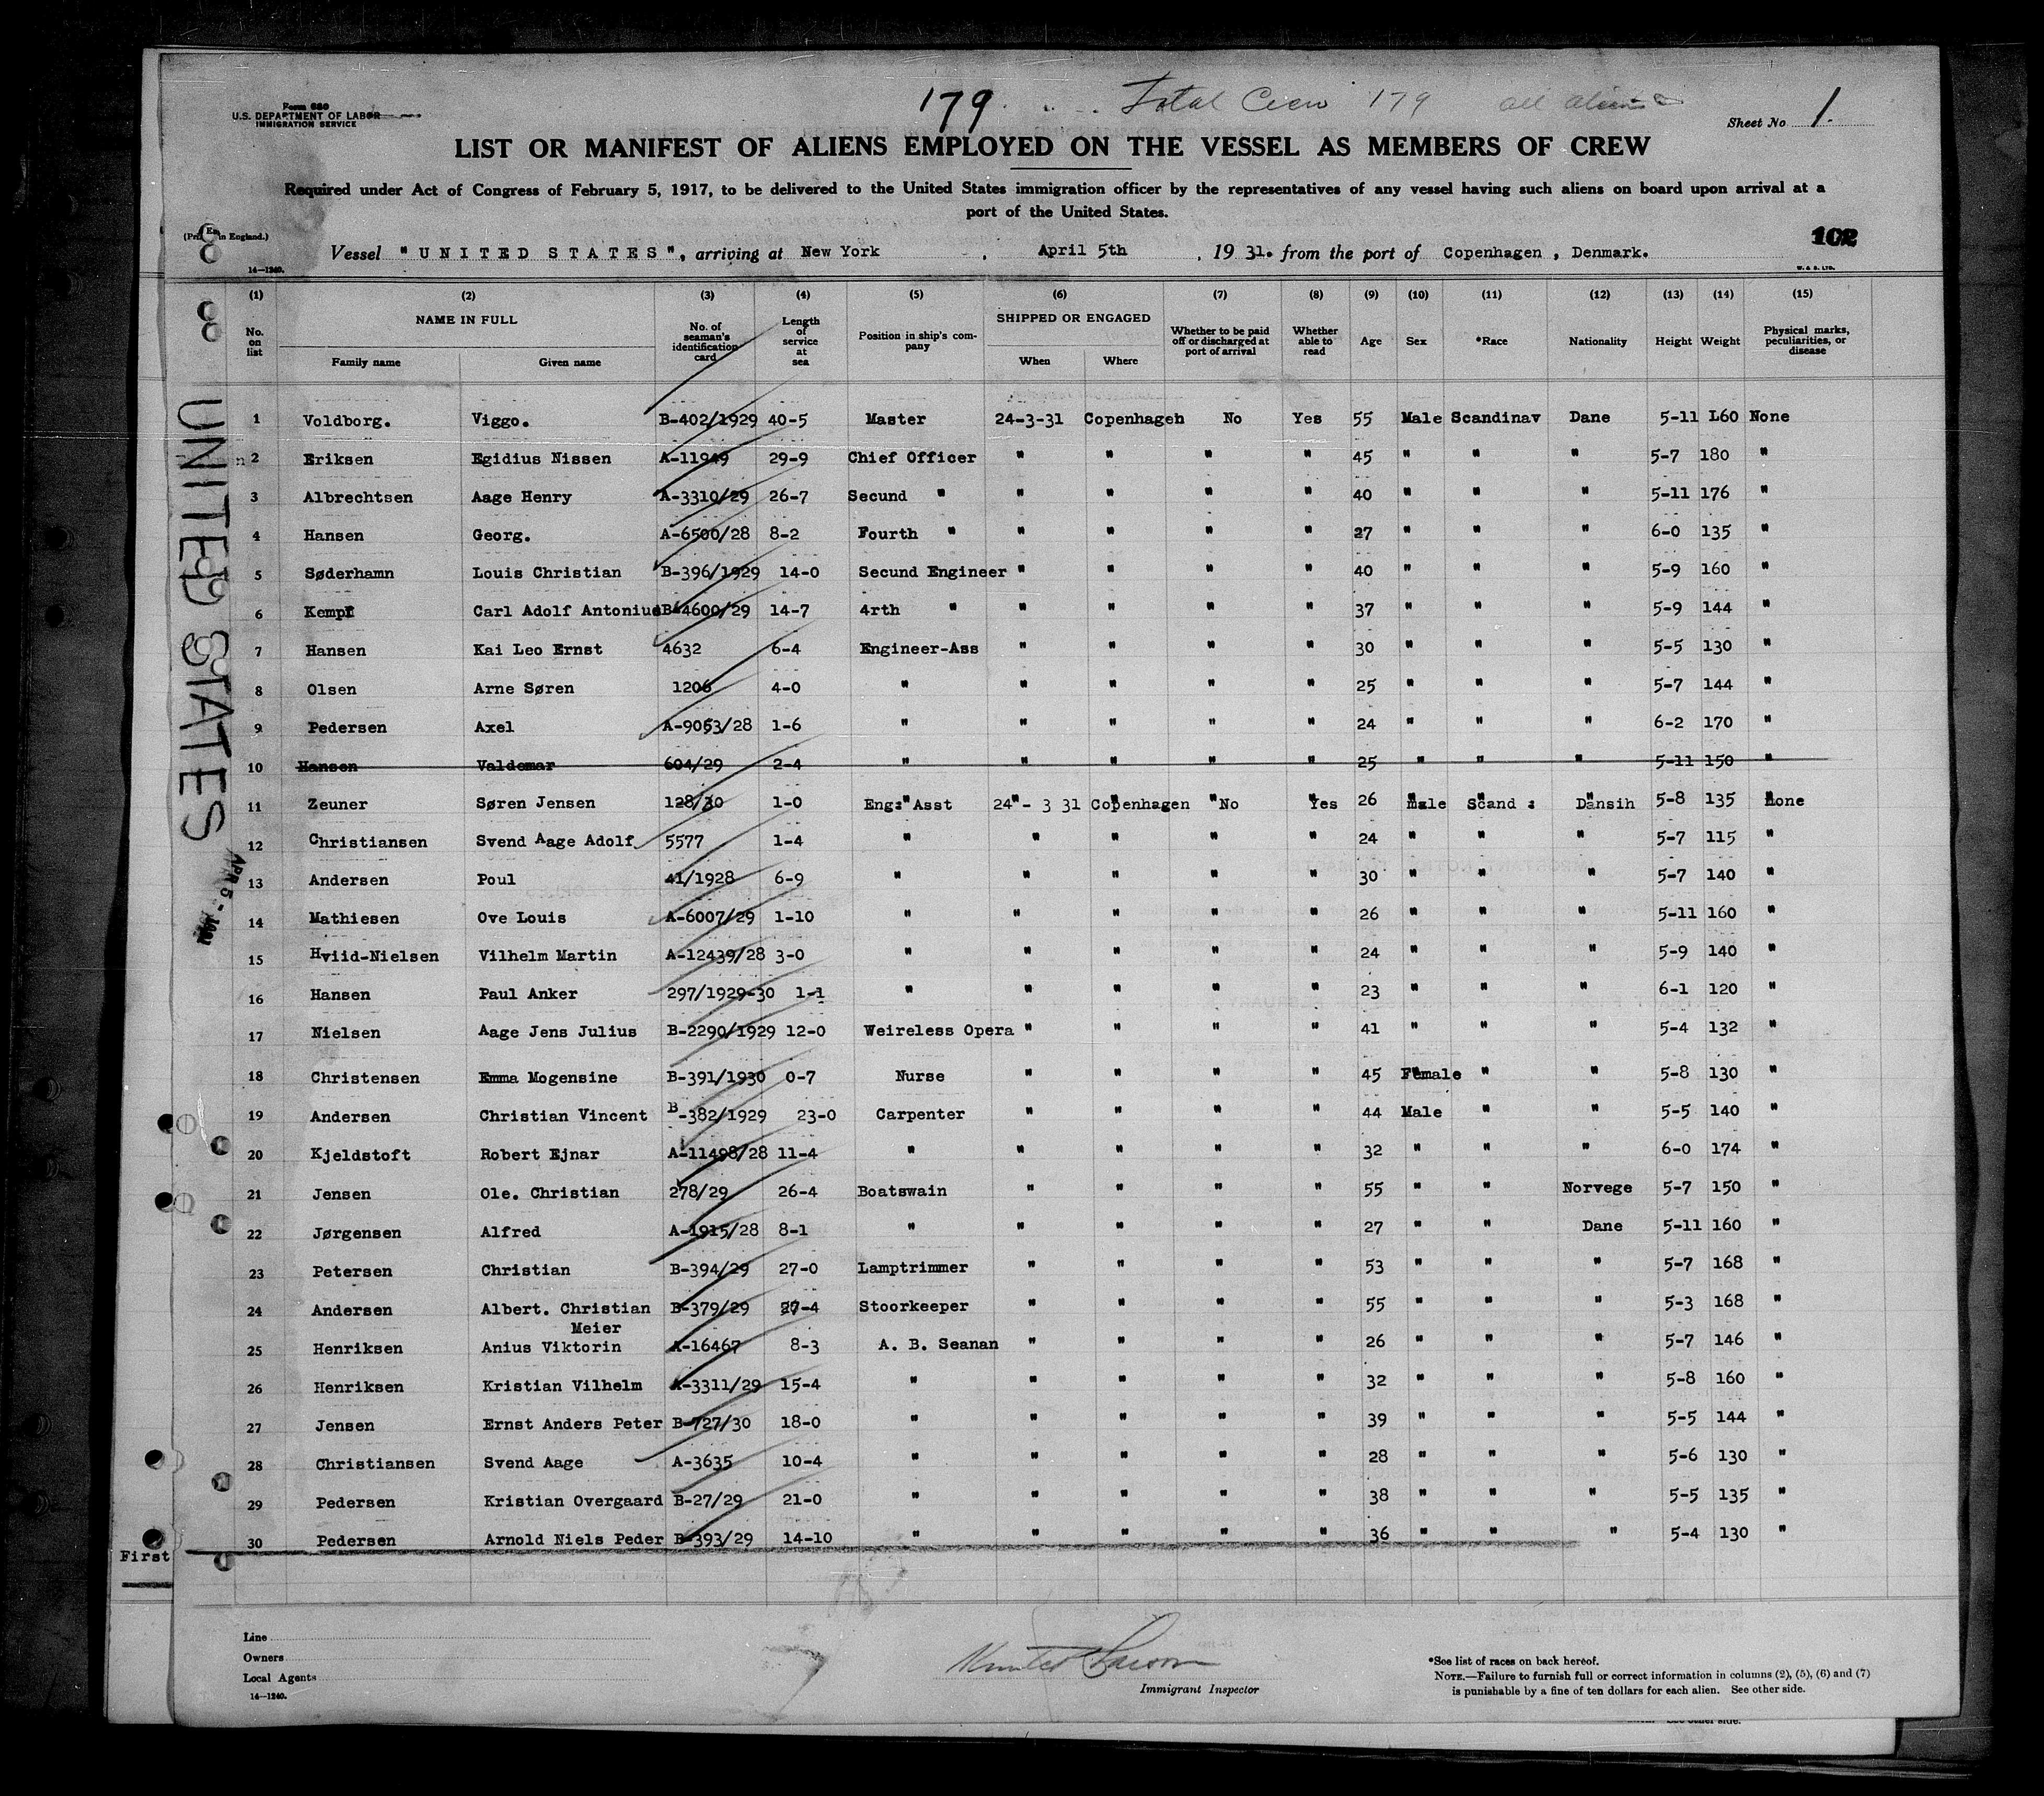 179 Total Crew 179 all aliens
Form 680
U.S. DEPARTMENT OF LABOR
IMMIGRATION SERVICE
Sheet No 1.
LIST OR MANIFEST OF ALIENS EMPLOYED ON THE VESSEL AS MEMBERS OF CREW
Required under Act of Congress of February 5, 1917, to be delivered to the United States immigration officer by the representatives of any vessel having such aliens on board upon arrival at a
port of the United States.
in England.)
102
Vessel "UNITED STATES", arriving at New York, April 5th, 1931. from the port of Copenhagen, Denmark.
14—1240.
W. & S. LTD.
(1) (2) (3) (4) (5) (6) (7) (8) (9) (10) (11) (12) (13) (14) (15)
No. on list NAME IN FULL Family name Given name No. of seaman's identification card Length of service at sea Position in ship's company SHIPPED OR ENGAGED When Where Whether to be paid off or discharged at port of arrival Whether able to read Age Sex *Race Nationality Height Weight Physical marks, peculiarities, or disease
1 Voldborg. Viggo. B-402/1929 40-5 Master 24-3-31 Copenhagen No Yes 55 Male Scandinav Dane 5-11 L60 None
2 Eriksen Egidius Nissen A-11949 29-9 Chief Officer " " " " 45 " " " 5-7 180 "
3 Albrechtsen Aage Henry A-3310/29 26-7 Secund " " " " " 40 " " " 5-11 176 "
4 Hansen Georg. A-6500/28 8-2 Fourth " " " " " 27 " " " 6-0 135 "
5 Søderhamn Louis Christian B-396/1929 14-0 Secund Engineer " " " " 40 " " " 5-9 160 "
6 Kempf Carl Adolf Antonius B-4600/29 14-7 4rth " " " " " 37 " " " 5-9 144 "
7 Hansen Kai Leo Ernst 4632 6-4 Engineer-Ass " " " " 30 " " " 5-5 130 "
8 Olsen Arne Søren 1206 4-0 " " " " " 25 " " " 5-7 144 "
9 Pedersen Axel A-9053/28 1-6 " " " " " 24 " " " 6-2 170 "
10 Hansen Valdemar 604/29 2-4 " " " " " 25 " " " 5-11 150 "
11 Zeuner Søren Jensen 128/30 1-0 Eng: Asst 24 - 3 31 Copenhagen No Yes 26 male Scand : Dansih 5-8 135 none
12 Christiansen Svend Aage Adolf 5577 1-4 " " " " " 24 " " " 5-7 115 "
13 Andersen Poul 41/1928 6-9 " " " " " 30 " " " 5-7 140 "
14 Mathiesen Ove Louis A-6007/29 1-10 " " " " " 26 " " " 5-11 160 "
15 Hviid-Nielsen Vilhelm Martin A-12439/28 3-0 " " " " " 24 " " " 5-9 140 "
16 Hansen Paul Anker 297/1929-30 1-1 " " " " " 23 " " " 6-1 120 "
17 Nielsen Aage Jens Julius B-2290/1929 12-0 Weireless Opera " " " " 41 " " " 5-4 132 "
18 Christensen Emma Mogensine B-391/1930 0-7 Nurse " " " " 45 Female " " 5-8 130 "
19 Andersen Christian Vincent B-382/1929 23-0 Carpenter " " " " 44 Male " " 5-5 140 "
20 Kjeldstoft Robert Ejnar A-11498/28 11-4 " " " " " 32 " " " 6-0 174 "
21 Jensen Ole. Christian 278/29 26-4 Boatswain " " " " 55 " " Norvege 5-7 150 "
22 Jørgensen Alfred A-1915/28 8-1 " " " " " 27 " " Dane 5-11 160 "
23 Petersen Christian B-394/29 27-0 Lamptrimmer " " " " 53 " " " 5-7 168 "
24 Andersen Albert. Christian Meier B-379/29 27-4 Stoorkeeper " " " " 55 " " " 5-3 168 "
25 Henriksen Anius Viktorin A-16467 8-3 A. B. Seanan " " " " 26 " " " 5-7 146 "
26 Henriksen Kristian Vilhelm A-3311/29 15-4 " " " " " 32 " " " 5-8 160 "
27 Jensen Ernst Anders Peter B-727/30 18-0 " " " " " 39 " " " 5-5 144 "
28 Christiansen Svend Aage A-3635 10-4 " " " " " 28 " " " 5-6 130 "
29 Pedersen Kristian Overgaard B-27/29 21-0 " " " " " 38 " " " 5-5 135 "
30 Pedersen Arnold Niels Peder B-393/29 14-10 " " " " " 36 " " " 5-4 130 "
UNITED STATES
APR 5 -
First
Line
Owners
Local Agents
14—1240.
Immigrant Inspector
*See list of races on back hereof.
NOTE.—Failure to furnish full or correct information in columns (2), (5), (6) and (7)
is punishable by a fine of ten dollars for each alien. See other side.
See other side.